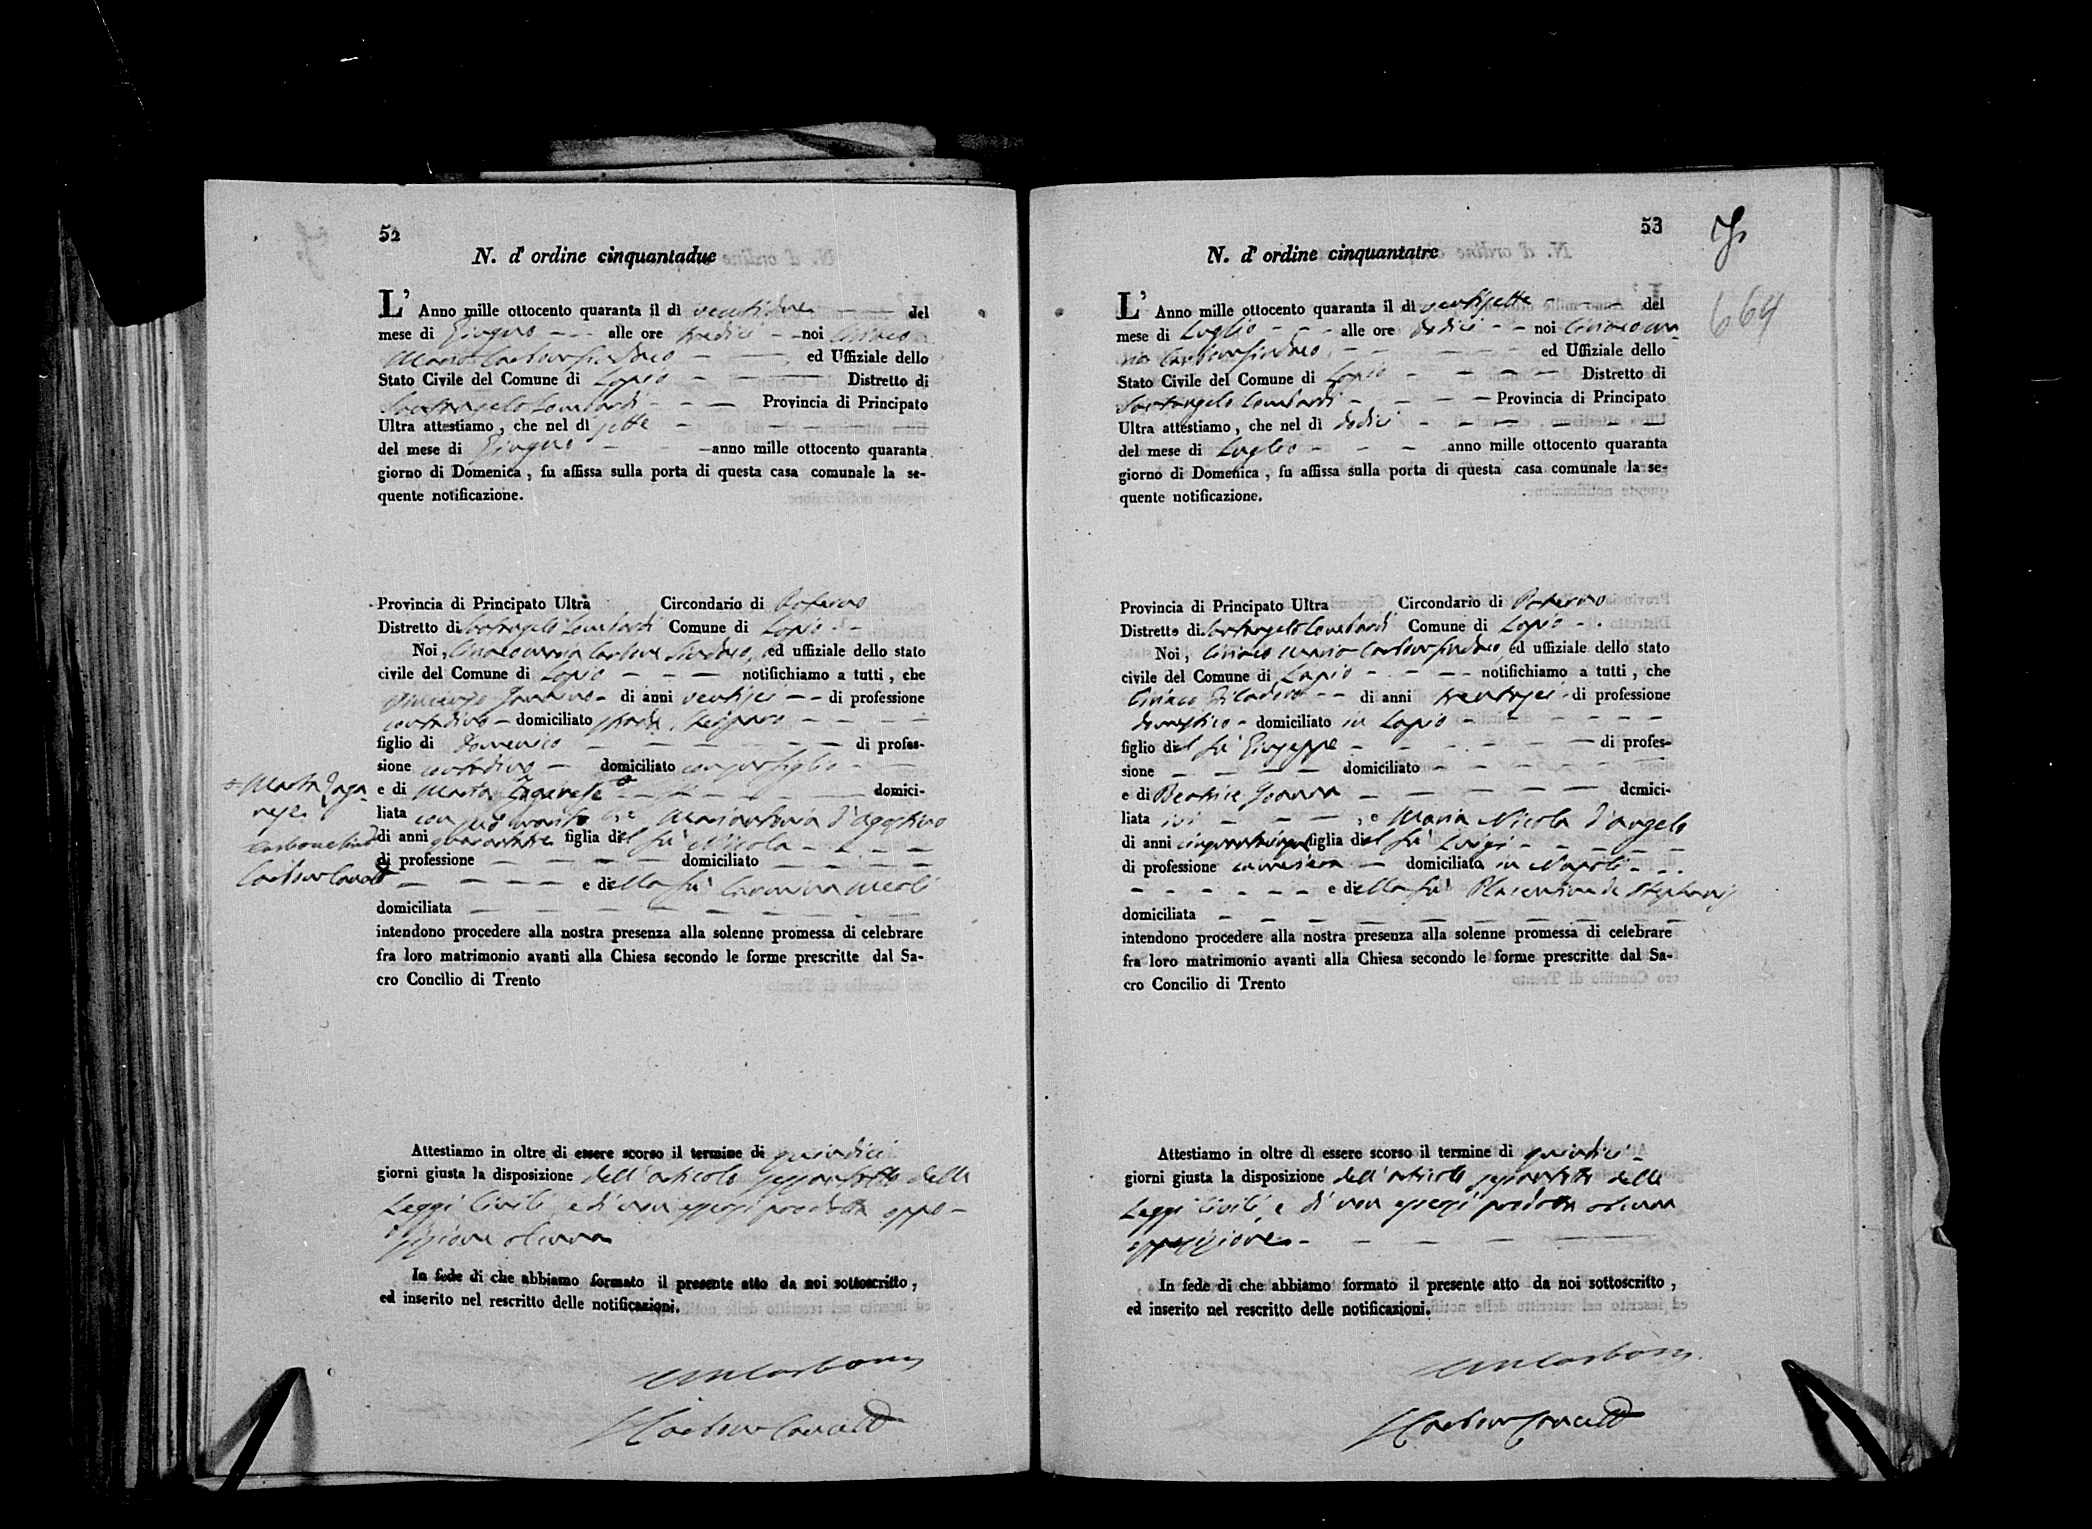 52
N. d' ordine cinquantadue
L' Anno mille ottocento quaranta il dì ventidue del
mese di Giugno alle ore tredici noi Ciriaco
Maria Carbone Sindaco ed Uffiziale dello
Stato Civile del Comune di Lapio Distretto di
Santangelo Lombardi Provincia di Principato
Ultra attestiamo, che nel dì sette
del mese di Giugno anno mille ottocento quaranta
giorno di Domenica, fu affissa sulla porta di questa casa comunale la se-
quente notificazione.
Provincia di Principato Ultra Circondario di Paterno
Distretto di Santangelo Lombardi Comune di Lapio
Noi, Ciriaco Maria Carbone Sindaco, ed uffiziale dello stato
civile del Comune di Lapio notifichiamo a tutti, che
di anni ventisei di professione
contadino domiciliato strada
figlio di Domenico di profes-
sione contadino domiciliato con suo figlio
e di Marta domici-
liata con suo marito e Mariantonia d'Agostino
di anni quarantatre figlia del fu Nicola
di professione domiciliato
e della fu Carmina Meoli
domiciliata
intendono procedere alla nostra presenza alla solenne promessa di celebrare
fra loro matrimonio avanti alla Chiesa secondo le forme prescritte dal Sa-
cro Concilio di Trento
+ Marta Zaga-
rese
Carbone Sind
Carbone Canc
Attestiamo in oltre di essere scorso il termine di quindici
giorni giusta la disposizione dell'articolo sessantotto delle
Leggi Civili, e di non essersi prodotta oppo-
sizione alcuna
In fede di che abbiamo formato il presente atto da noi sottoscritto,
ed inserito nel rescritto delle notificazioni.
CM Carbone
Carbone Canc
53
664
N. d' ordine cinquantatre
L' Anno mille ottocento quaranta il dì ventisette del
mese di Luglio alle ore dodici noi Ciriaco Ma-
ria Carbone Sindaco ed Uffiziale dello
Stato Civile del Comune di Lapio Distretto di
Santangelo Lombardi Provincia di Principato
Ultra attestiamo, che nel dì dodici
del mese di Luglio anno mille ottocento quaranta
giorno di Domenica, fu affissa sulla porta di questa casa comunale la se-
quente notificazione.
Provincia di Principato Ultra Circondario di Paterno
Distretto di Santangelo Lombardi Comune di Lapio
Noi, Ciriaco Maria Carbone Sindaco, ed uffiziale dello stato
civile del Comune di Lapio notifichiamo a tutti, che
Ciriaco Filadoro di anni trentasei di professione
domestico domiciliato in Lapio
figlio del fu Giuseppe di profes-
sione domiciliato
e di Beatrice Joanna domici-
liata ivi, e Maria Nicola d'Angelo
di anni cinquantacinque figlia del fu Luigi
di professione cameriera domiciliata in Napoli
e della fu Placentina de Stephanis
domiciliata
intendono procedere alla nostra presenza alla solenne promessa di celebrare
fra loro matrimonio avanti alla Chiesa secondo le forme prescritte dal Sa-
cro Concilio di Trento
Attestiamo in oltre di essere scorso il termine di quindici
giorni giusta la disposizione dell'articolo sessantotto delle
Leggi Civili, e di non essersi prodotta alcuna
opposizione
In fede di che abbiamo formato il presente atto da noi sottoscritto,
ed inserito nel rescritto delle notificazioni.
CM Carbone
Carbone Canc